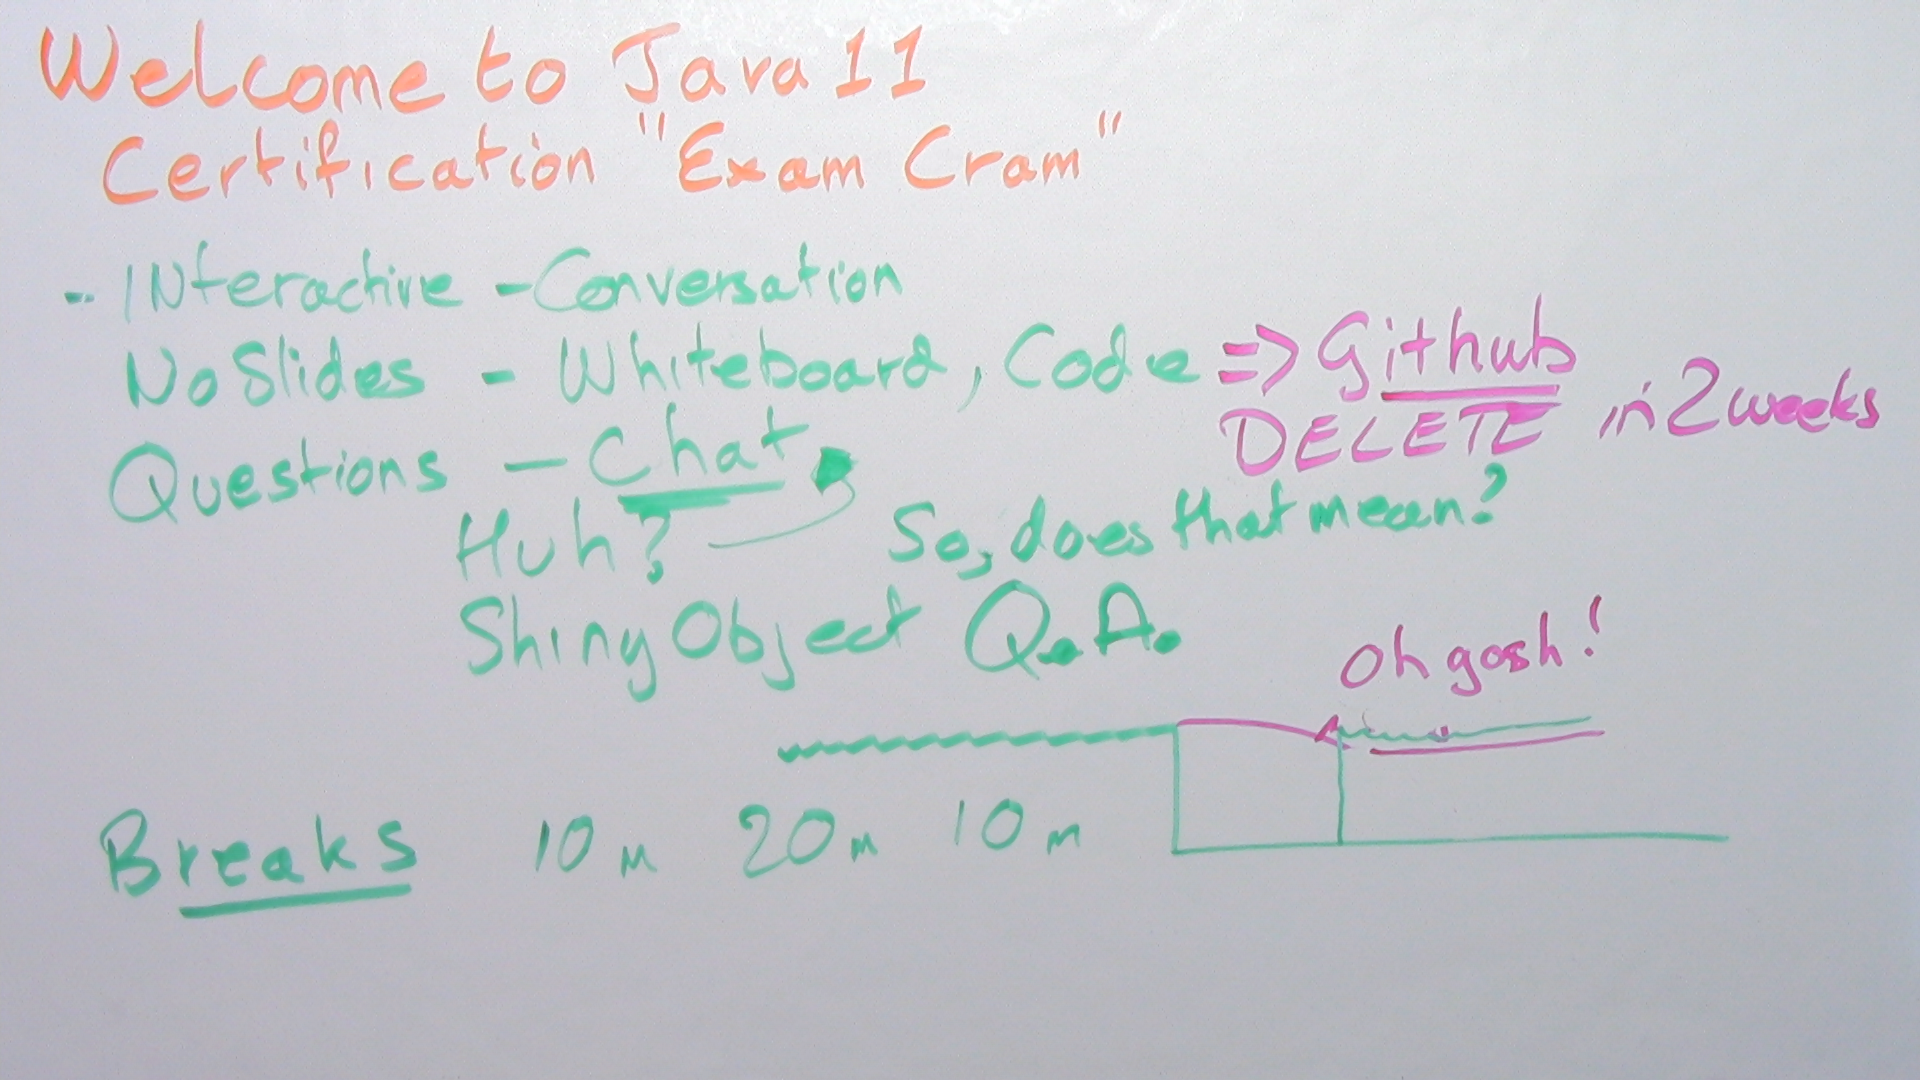 Welcome to Java 11
Certification "Exam Cram"
- INteractive - Conversation
No Slides - Whiteboard, Code => Github
DELETE in 2 weeks
Questions - Chat
Huh? So, does that mean?
Shiny Object Q.A.
Oh gosh!
Breaks 10m 20m 10m